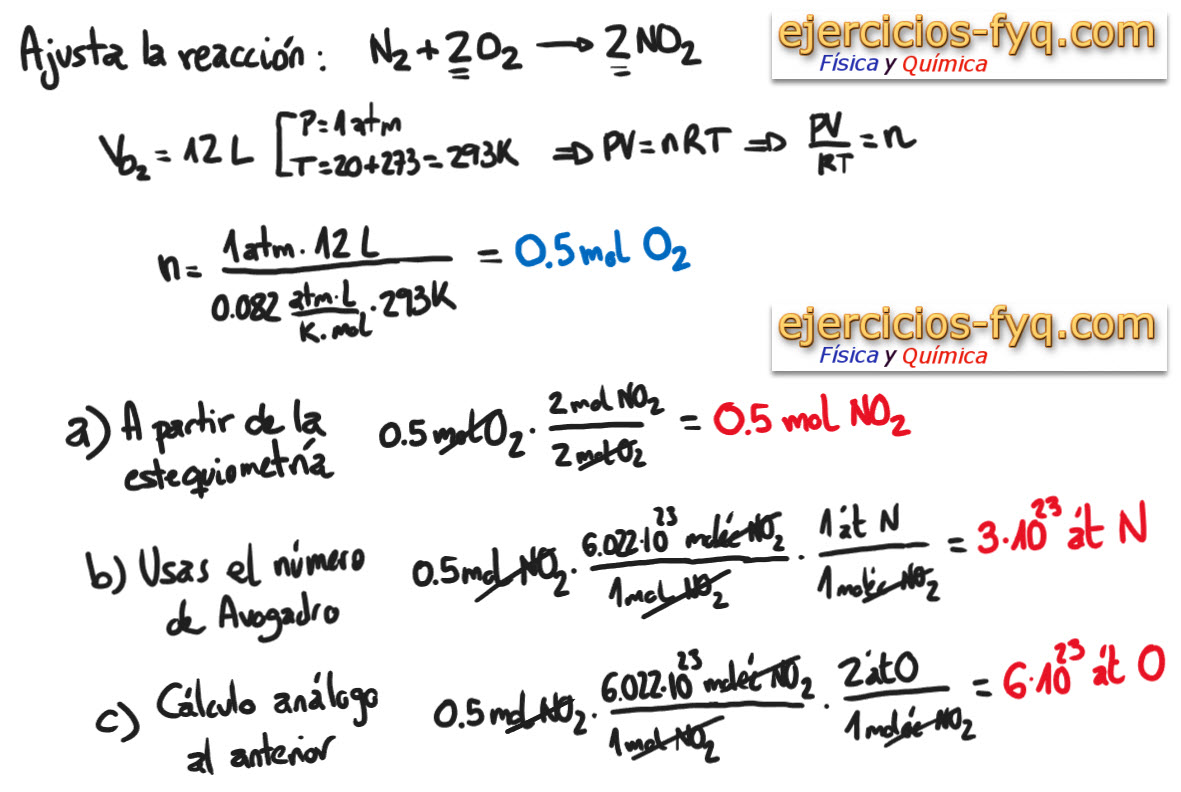 Ajusta la reacción: N₂ + 2O₂ → 2NO₂
ejercicios-fyq.com
Física y Química
V_O₂ = 12 L [P = 1 atm
T = 20 + 273 = 293K ⇒ PV = nRT ⇒ PV/RT = n
n = (1 atm · 12 L)/(0.082 (atm·L)/(K·mol) · 293K) = 0.5 mol O₂
ejercicios-fyq.com
Física y Química
a) A partir de la
estequiometría
0.5 mol O₂ · (2 mol NO₂)/(2 mol O₂) = 0.5 mol NO₂
b) Usas el número
de Avogadro
0.5 mol NO₂ · (6.022·10²³ moléc NO₂)/(1 mol NO₂) · (1 át N)/(1 moléc NO₂) = 3·10²³ át N
c) Cálculo análogo
al anterior
0.5 mol NO₂ · (6.022·10²³ moléc NO₂)/(1 mol NO₂) · (2 át O)/(1 moléc NO₂) = 6·10²³ át O